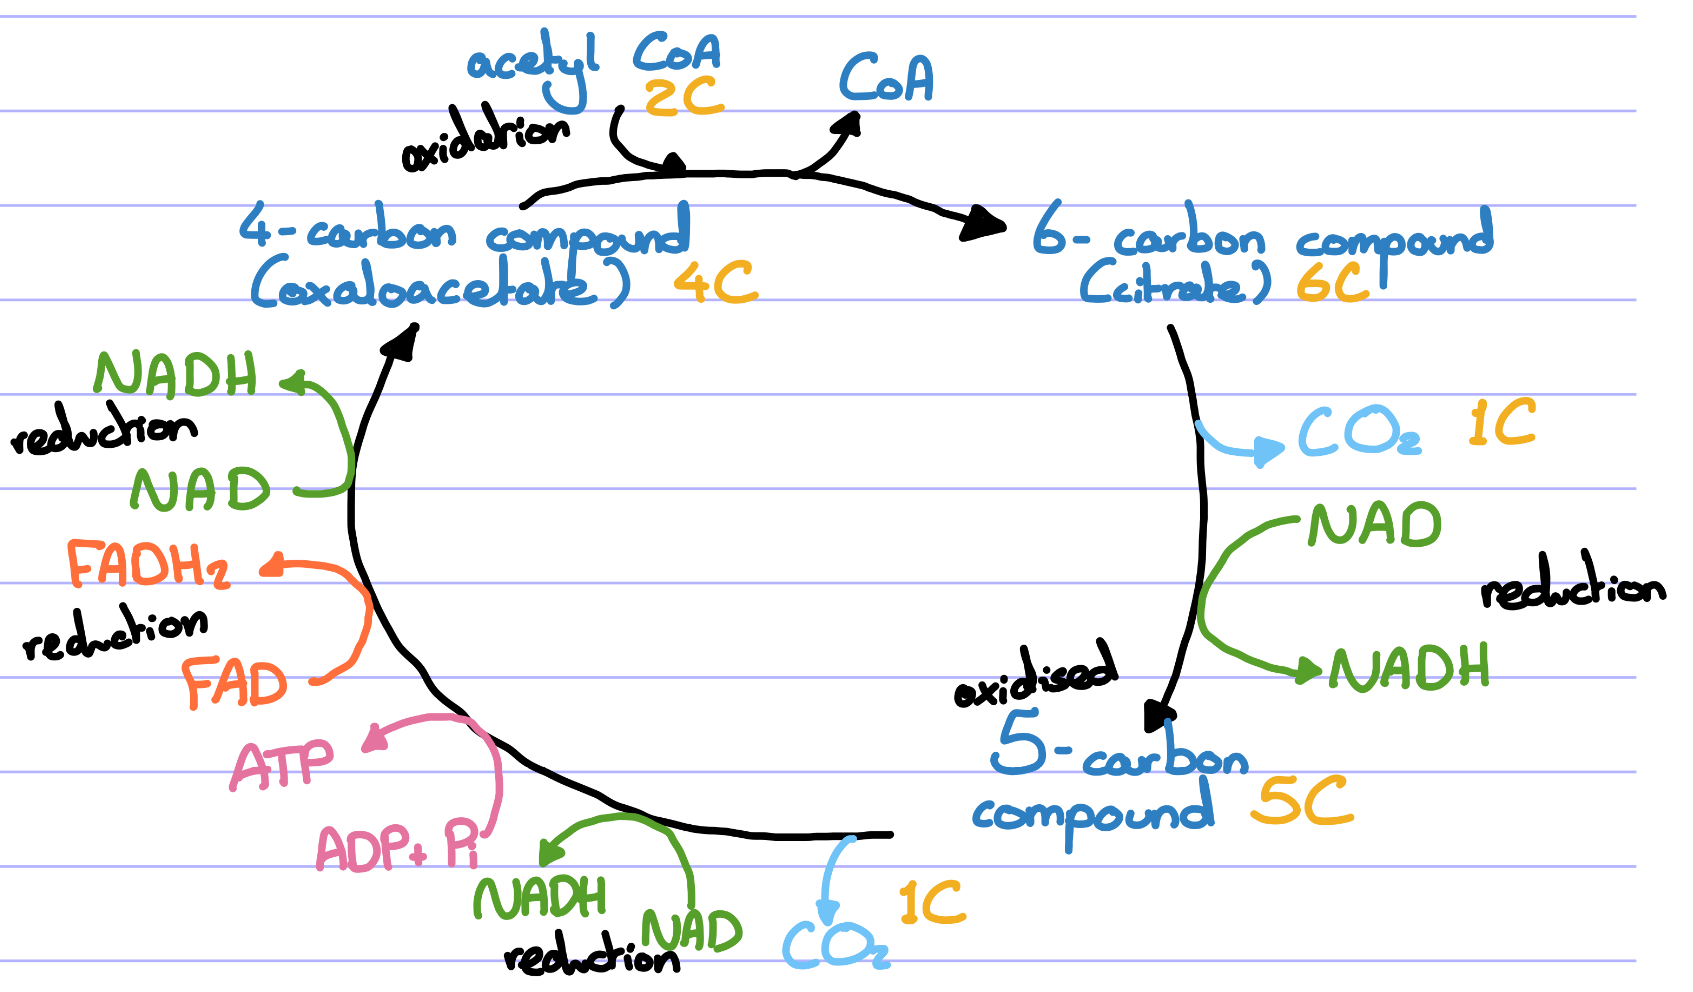 acetyl CoA
2C
CoA
oxidation
4-carbon compound
(oxaloacetate) 4C
6-carbon compound
(citrate) 6C
NADH
reduction
NAD
FADH₂
reduction
FAD
ATP
ADP + Pi
NADH
NAD
reduction
CO₂ 1C
NAD
reduction
NADH
oxidised
5-carbon
compound 5C
1C
CO₂